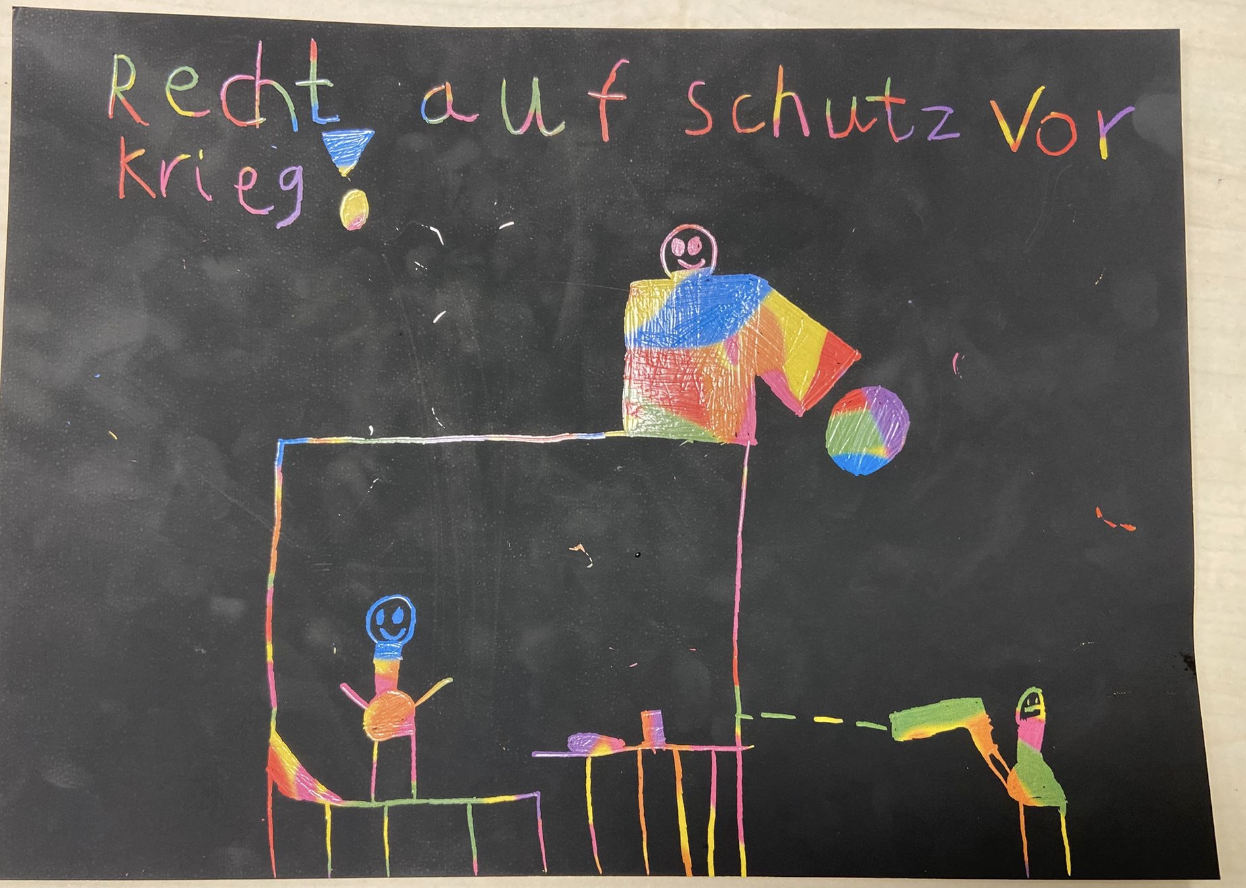 Recht auf schutz vor
krieg!